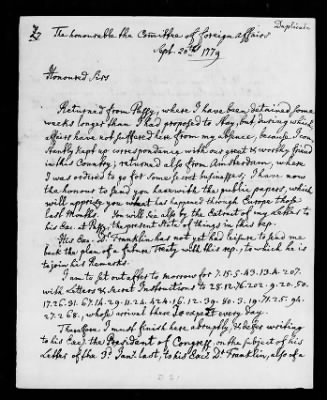 Duplicate
The honourable the Committee of foreign affairs
Sept. 20th 1779
Honoured Sirs
Returned from Passy, where I have been detained some
weeks longer than I had proposed to stay, but during which
affairs have not suffered here from my absence, because I con-
stantly kept up correspondence with our great & worthy friend
in this Country; returned also from Amsterdam, where
I was ordered to go for some secret businesses; I have now
the honour to send you herewith the public papers, which
will apprise you what has happened through Europe those
last Months. You will see also by the Extract of my Letter to
his Exc. at Passy, the present State of things in this rep.
His Exc. Dr. Franklin has not yet had leisure to send me
back the plan of a future Treaty with this rep., to which he is
to join his Remarks.
I am to set out after to morrow for 7.15.5.43.13.4.207.
with Letters & Secret Instructions to 28.12.76.202.9.20.50.
17.26.31.67.14.29.11.24.424.16.12.39.80.3.19.71.25.94.
27.268., whose arrival there I expect every day.
Therefore I must finish here abruptly, & defer writing
to his Excy. the President of Congress, on the subject of his
Letter of the 3d. Jany. last, to his Excy Dr. Franklin, also of a